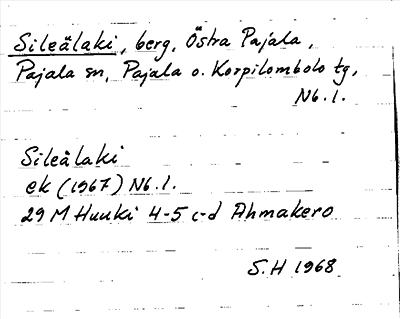 Sileälaki, berg, Östra Pajala,
Pajala sn, Pajala o. Korpilombolo tg,
Nb. l.
Sileälaki
ek (1967) Nb. l.
29 M Huuki 4-5 c-d Ahmakero
S.H 1968